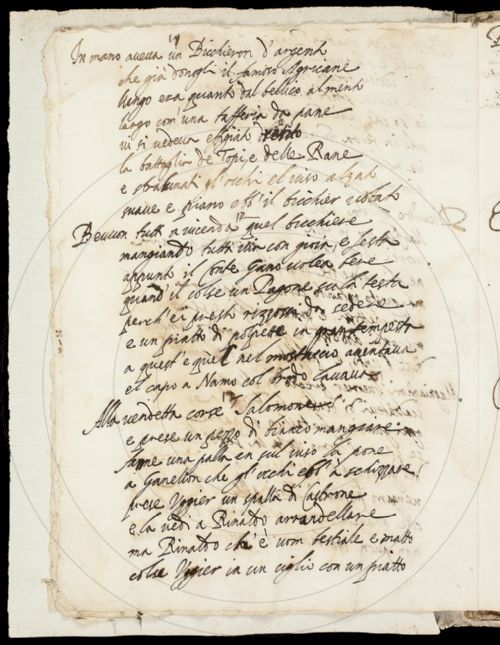 17
In mano aveva un Bicchieron d'argento
che già donogli il famoso Agricane
lungo era quanto dal bellico al mento
largo com'una tafferia da pane
ivi si vedeva effigiato
la battaglia de Topi, e delle Rane
e gl'occhi el viso alzato
suave e piano ebb'il bicchier votato
18
Bevvon tutti a vicenda quel bicchiere
mangiando tutti con gioia, e festa
appunto il Conte Gano volea bere
quand'il colse un Pagone su la testa
perch'ei questi da sedere
e un piatto di polpette in gran tempesta
a quest'e quel nel mostaccio aventava
e'l capo a Namo col brodo lavava
19
Alla vendetta corse Salomone
e prese un pezzo di bianco mangiare
fanne una palla en sul viso la pone
a Ganellon che gl'occhi ebb'a schizzare
prese Uggier un spalla di Castrone
e la vedi a Rinaldo arrandellare
ma Rinaldo ch'è uom bestiale e matto
colse Uggier in un ciglio con un piatto